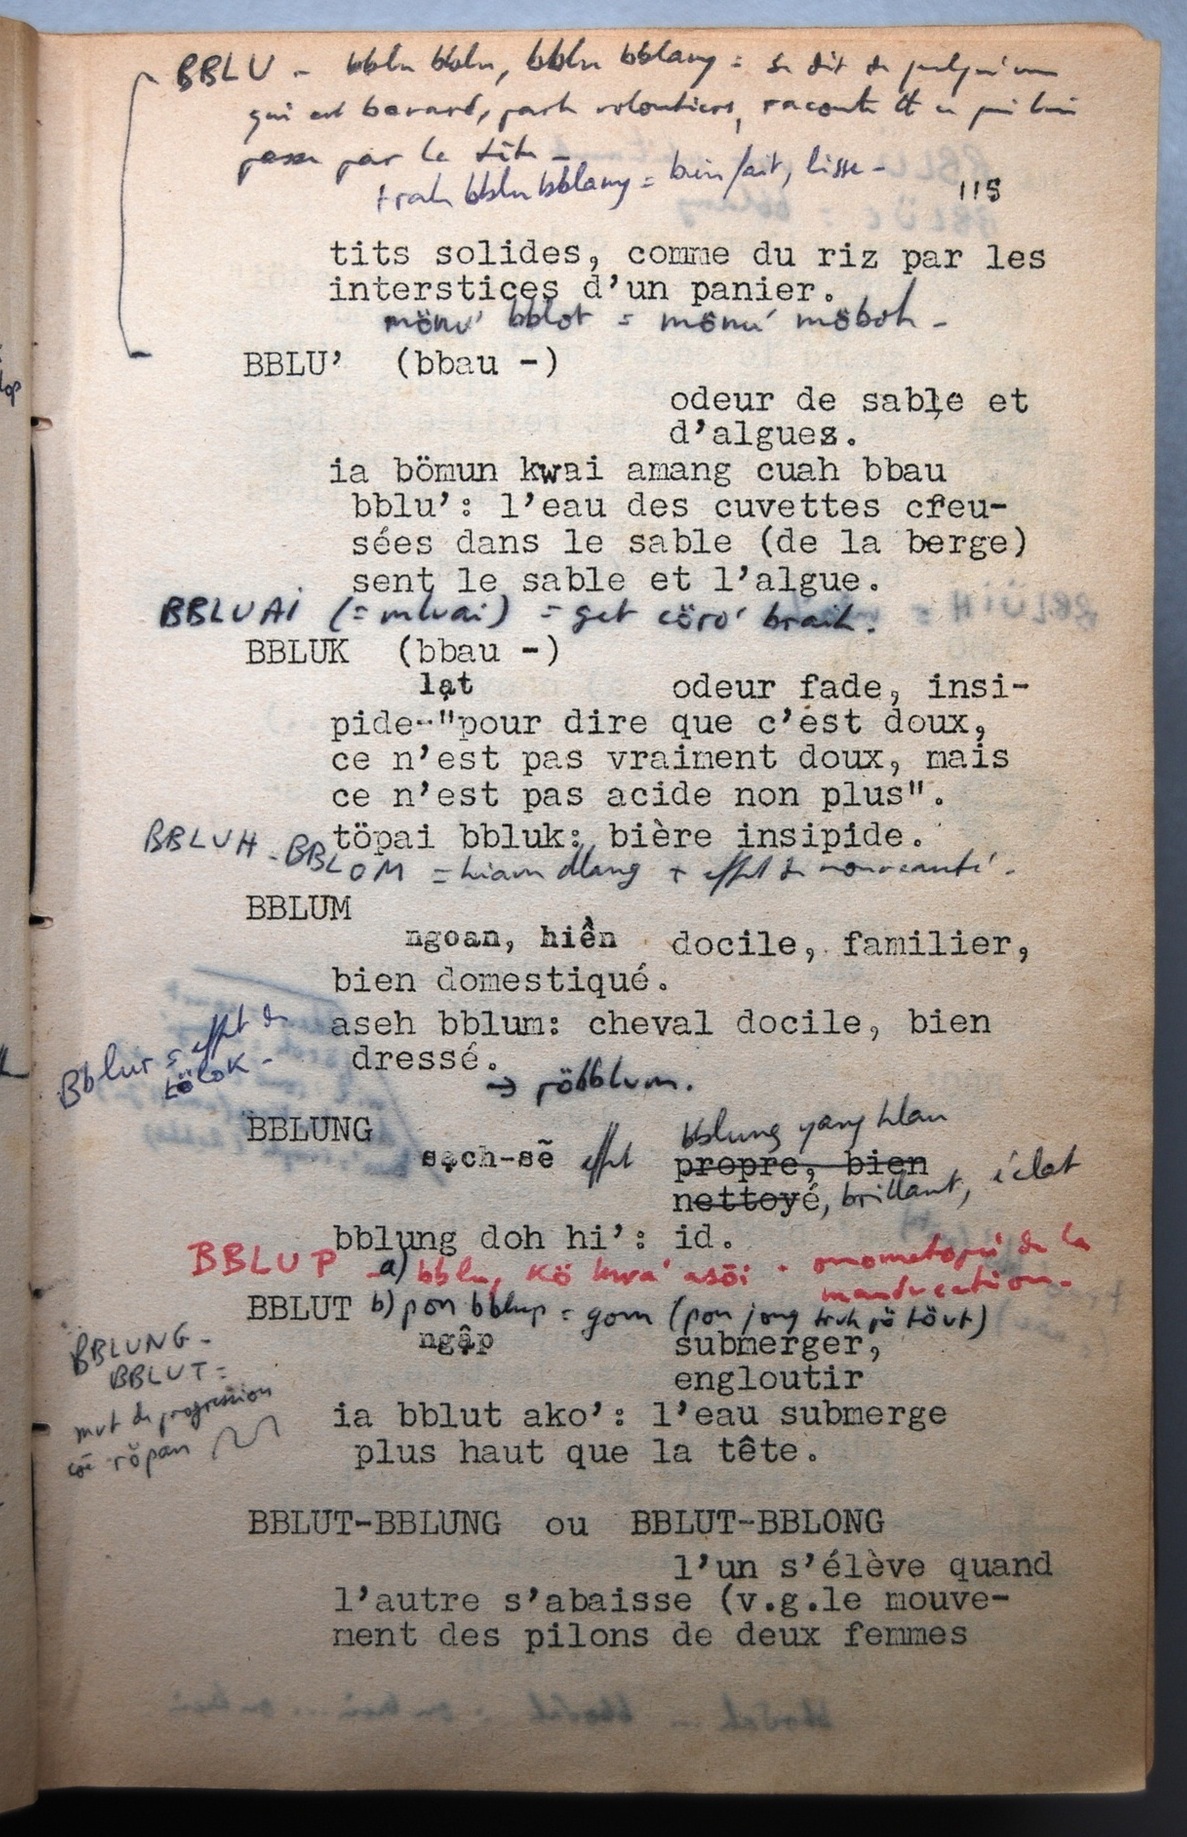 BBLU - bblu bblu, bblu bblang = se dit de quelqu'un
qui est bavard, parle volontiers, raconte tt ce qui lui
passe par la tête -
trah bblu bblang = bien fait, lisse -
115
tits solides, comme du riz par les
interstices d'un panier.
mönu' bblot = mönu' möboh -
BBLU' (bbau -)
odeur de sable et
d'algues.
ia bömun kwai amang cuah bbau
bblu': l'eau des cuvettes creu-
sées dans le sable (de la berge)
sent le sable et l'algue.
BBLUAI (= mluai) = get cörö' braih.
BBLUK (bbau -)
lạt odeur fade, insi-
pide--"pour dire que c'est doux,
ce n'est pas vraiment doux, mais
ce n'est pas acide non plus".
töpai bbluk: bière insipide.
BBLUH - BBLOM = hiam dlang + effet de nouveauté.
BBLUM
ngoan, hiền docile, familier,
bien domestiqué.
aseh bblum: cheval docile, bien
dressé.
→ pöbblum.
Bblur = effet de
kölok -
BBLUNG
bblung yang hlau
sạch-sẽ effet propre, bien
nettoyé, brillant, éclat
bblung doh hi': id.
BBLUP a) bblu, kö kwa' asöi - onomatopée de la
manducation.
BBLUT b) pon bblup = gom (pon jong truh pö töut)
ngập submerger,
engloutir
BBLUNG -
BBLUT =
mvt de progression
ropan
ia bblut ako': l'eau submerge
plus haut que la tête.
BBLUT-BBLUNG ou BBLUT-BBLONG
l'un s'élève quand
l'autre s'abaisse (v.g.le mouve-
ment des pilons de deux femmes